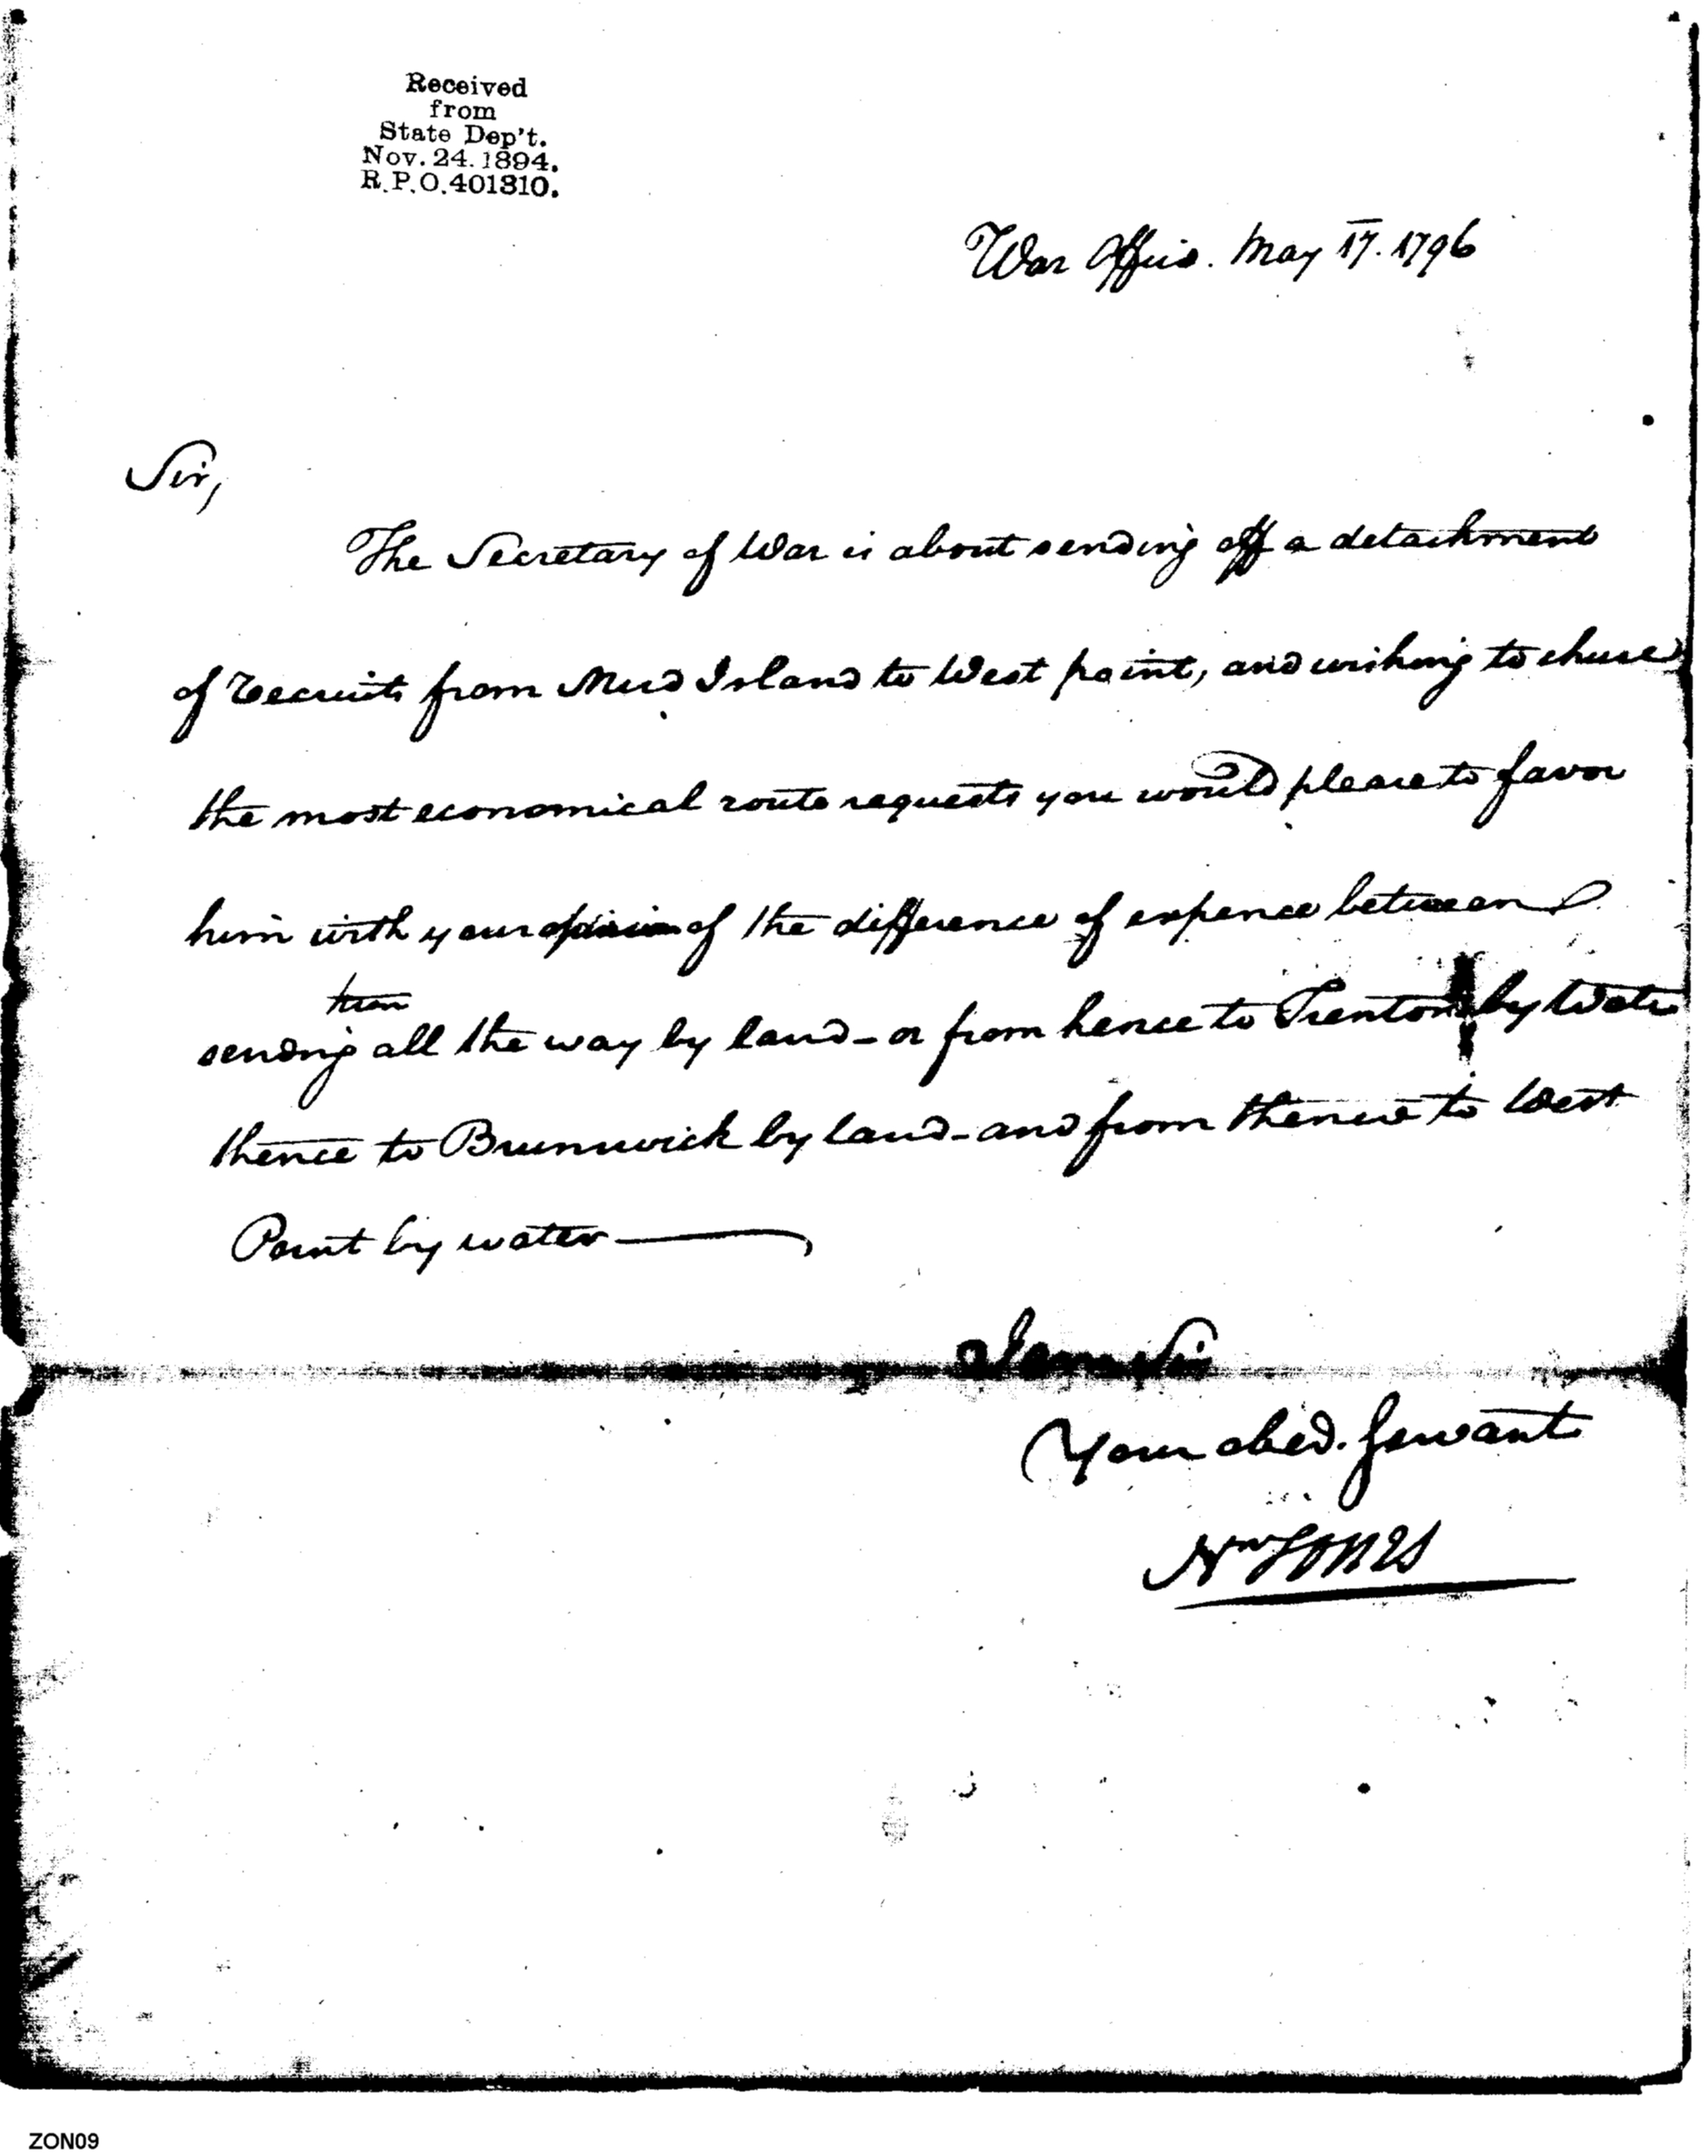 Received
from
State Dep't.
Nov. 24. 1894.
R.P.O. 401310.
War Office. May 17. 1796
Sir,
The Secretary of War is about sending off a detachment
of recruits from Mud Island to West point, and wishing to chuse
the most economical route requests you would please to favor
him with your opinion of the difference of expence between
them
sending all the way by land - or from hence to Trenton by Water
thence to Brunswick by land - and from thence to West
Point by water
I am Sir
Your obed. Servant
Wm JONES
ZON09